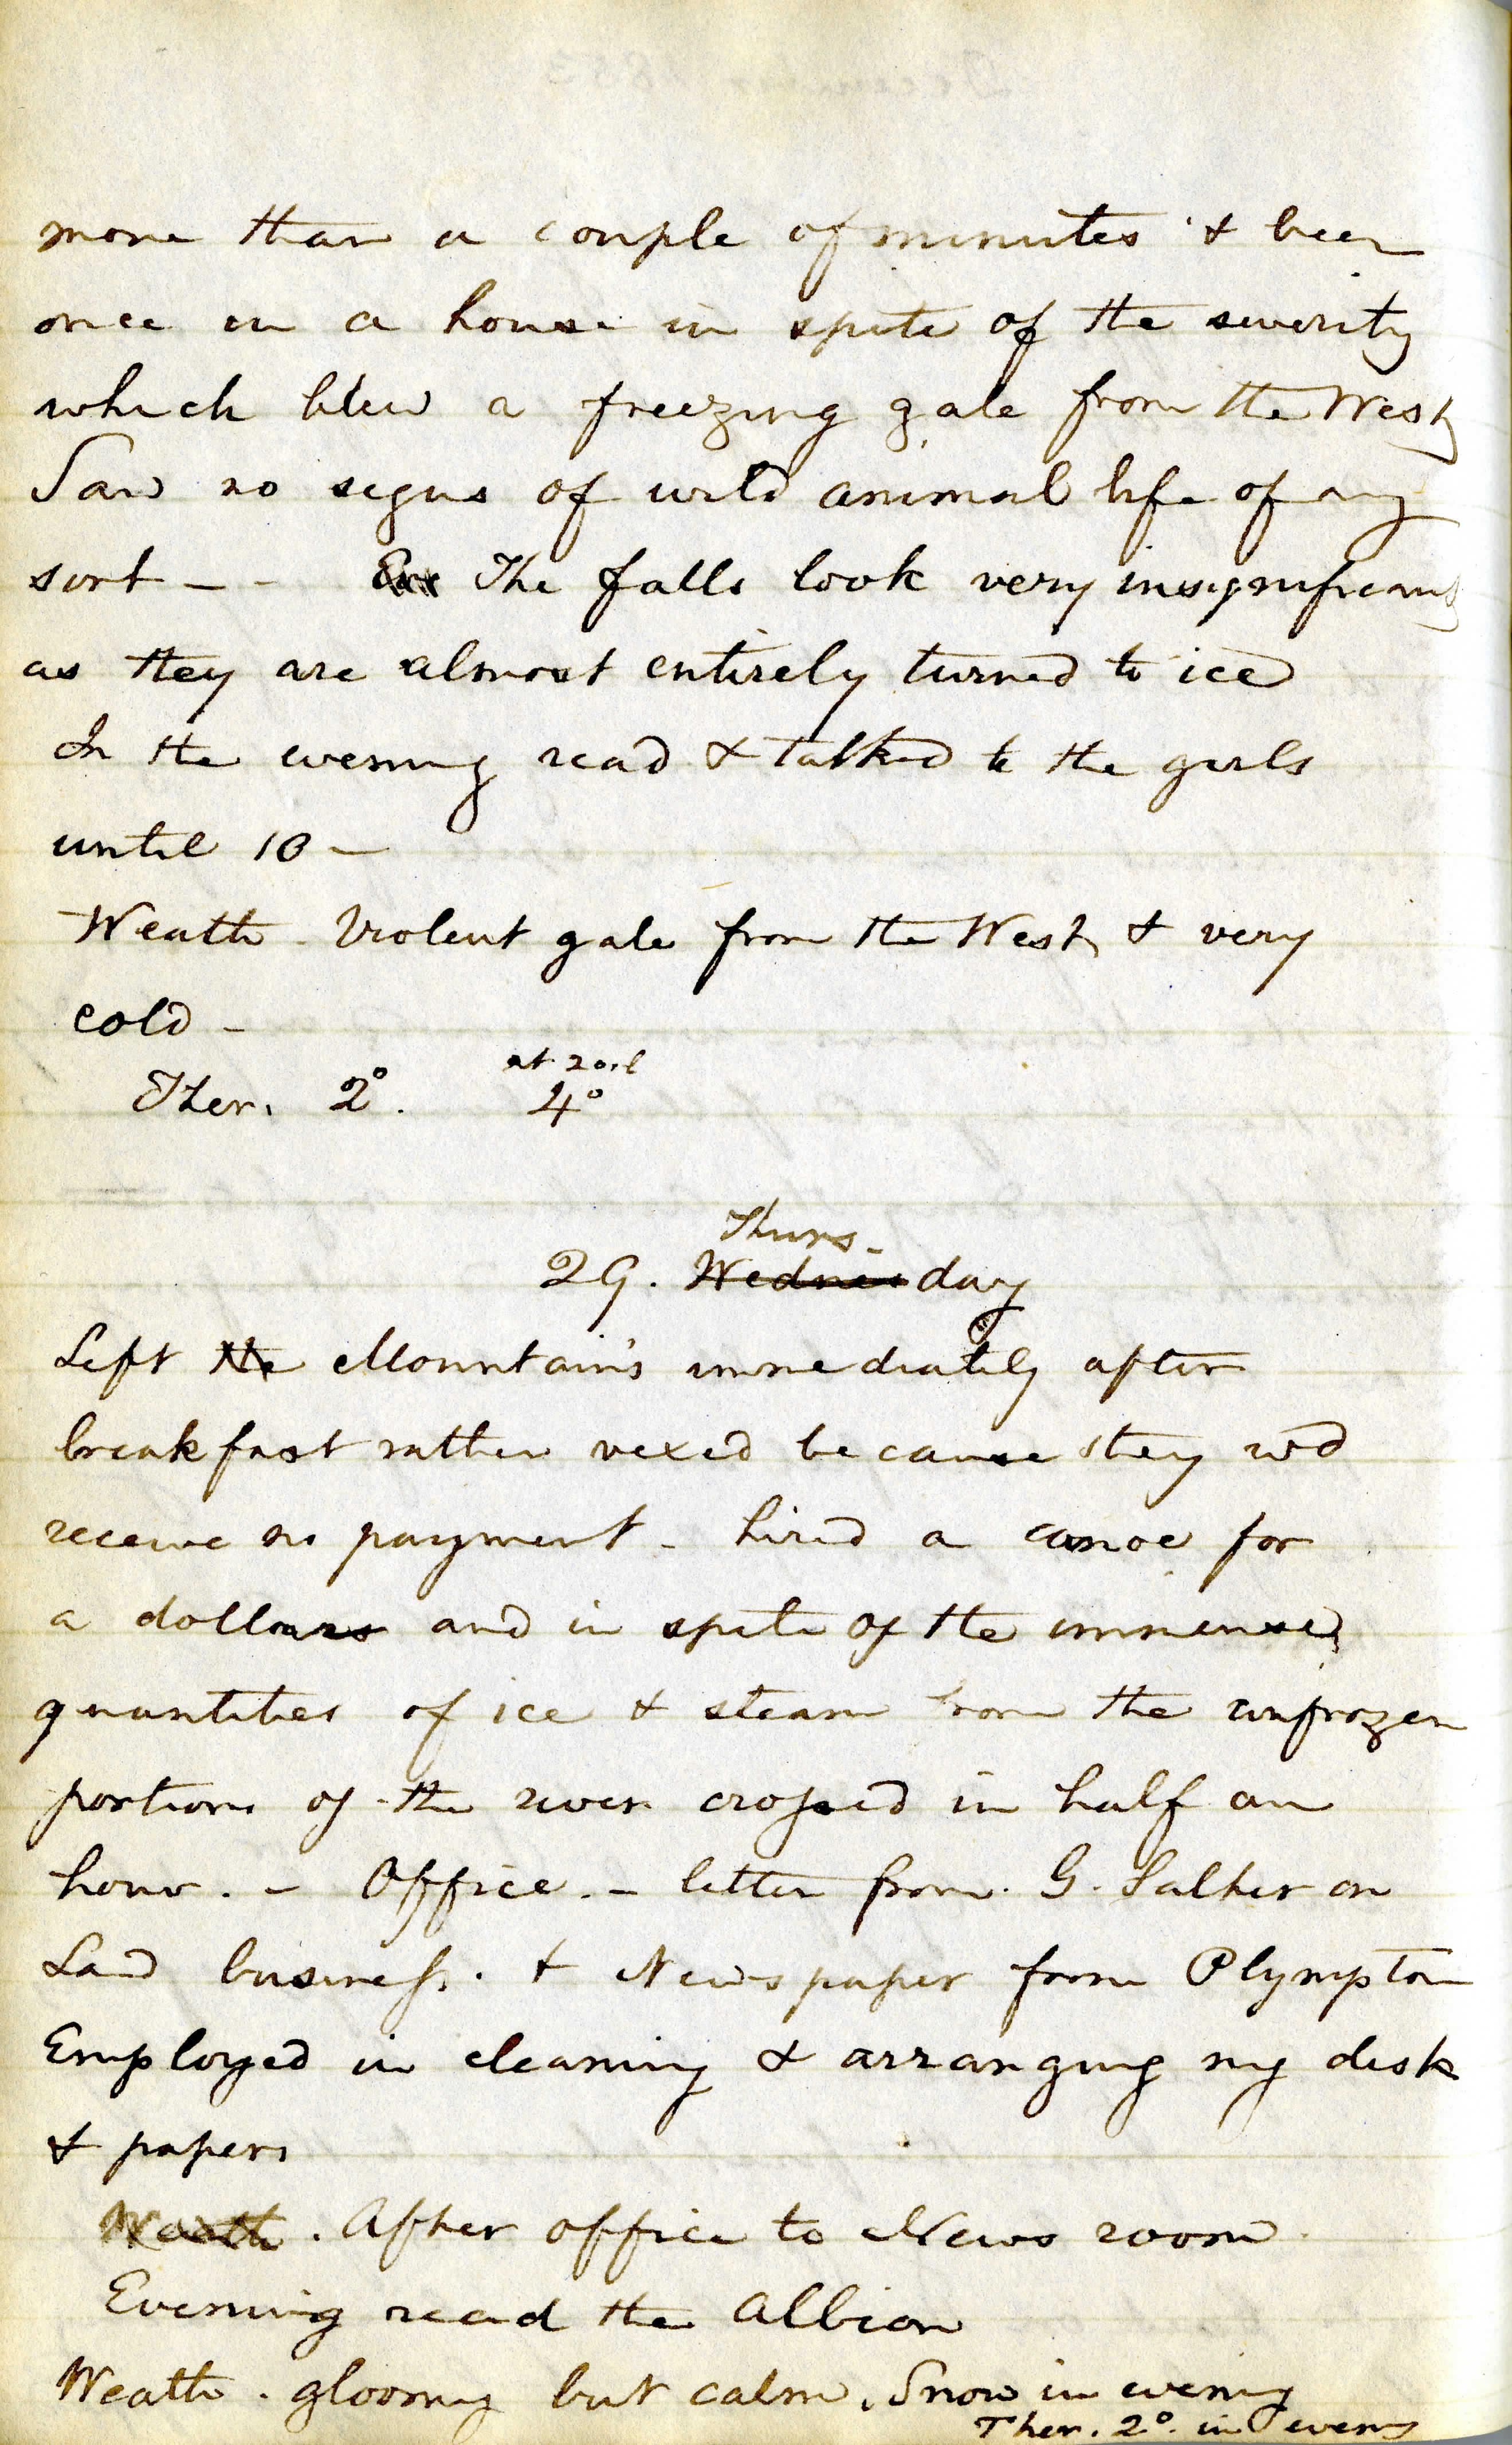 more than a couple of minutes & been
once in a house in spite of the severity
which blew a freezing gale from the West
Saw no signs of wild animal life of any
sort - - The falls look very insignificant
as they are almost entirely turned to ice
In the evening read & talked to the girls
until 10 -
Weath - Violent gale from the West, & very
cold -
at
Ther. 2°. 4°
Thurs-
29. Wednesday
Left the Mountain's immediately after
breakfast rather vexed because they wd
receive no payment - hired a canoe for
a dollars and in spite of the immense
quantities of ice & steam from the unfrozen
portions of the river crossed in half an
hour. - Office. - letter from G. Salter on
Land business. & Newspaper from Plympton
Employed in cleaning & arranging my desk
& papers
Weath. After office to News room.
Evening read the Albion
Weath. gloomy but calm. Snow in evening
Ther. 2°. in eveng